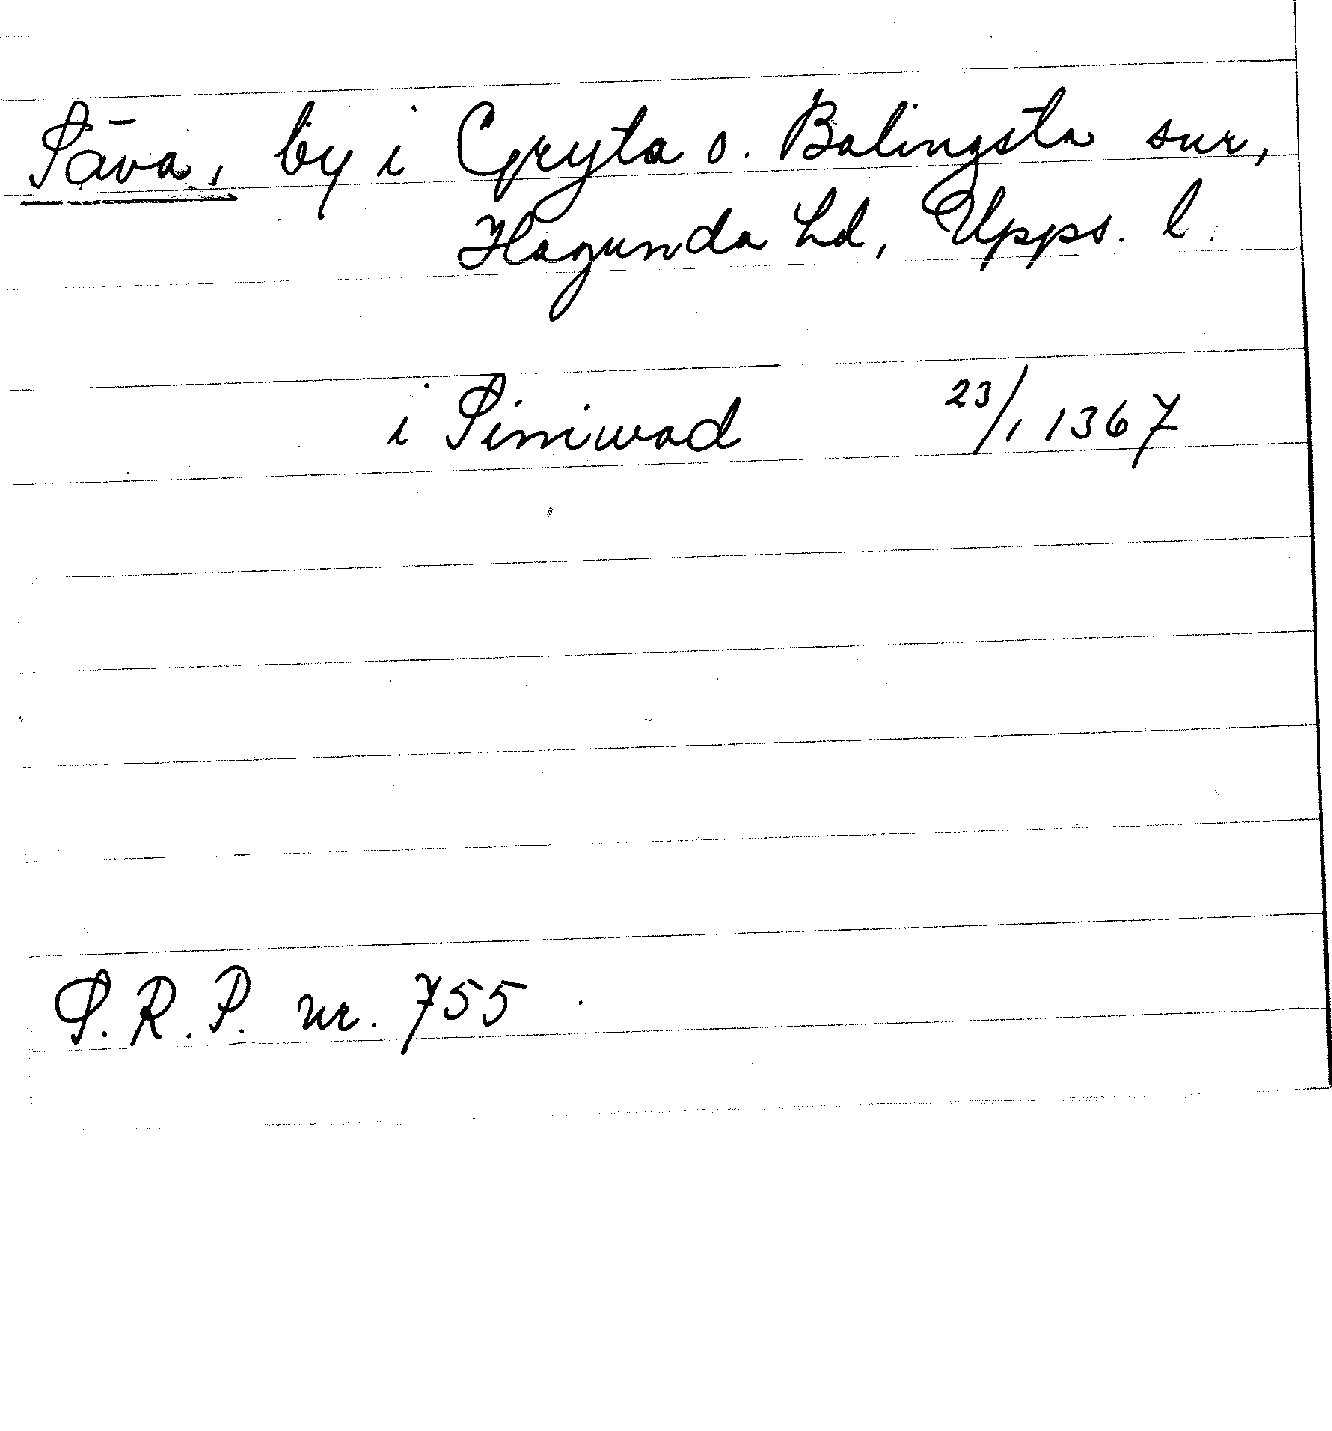 Säva, by i Gryta o. Balingsta snr,
Hagunda hd, Upps. l.
i Siniwad 23/1 1367
S.R.P. nr. 755